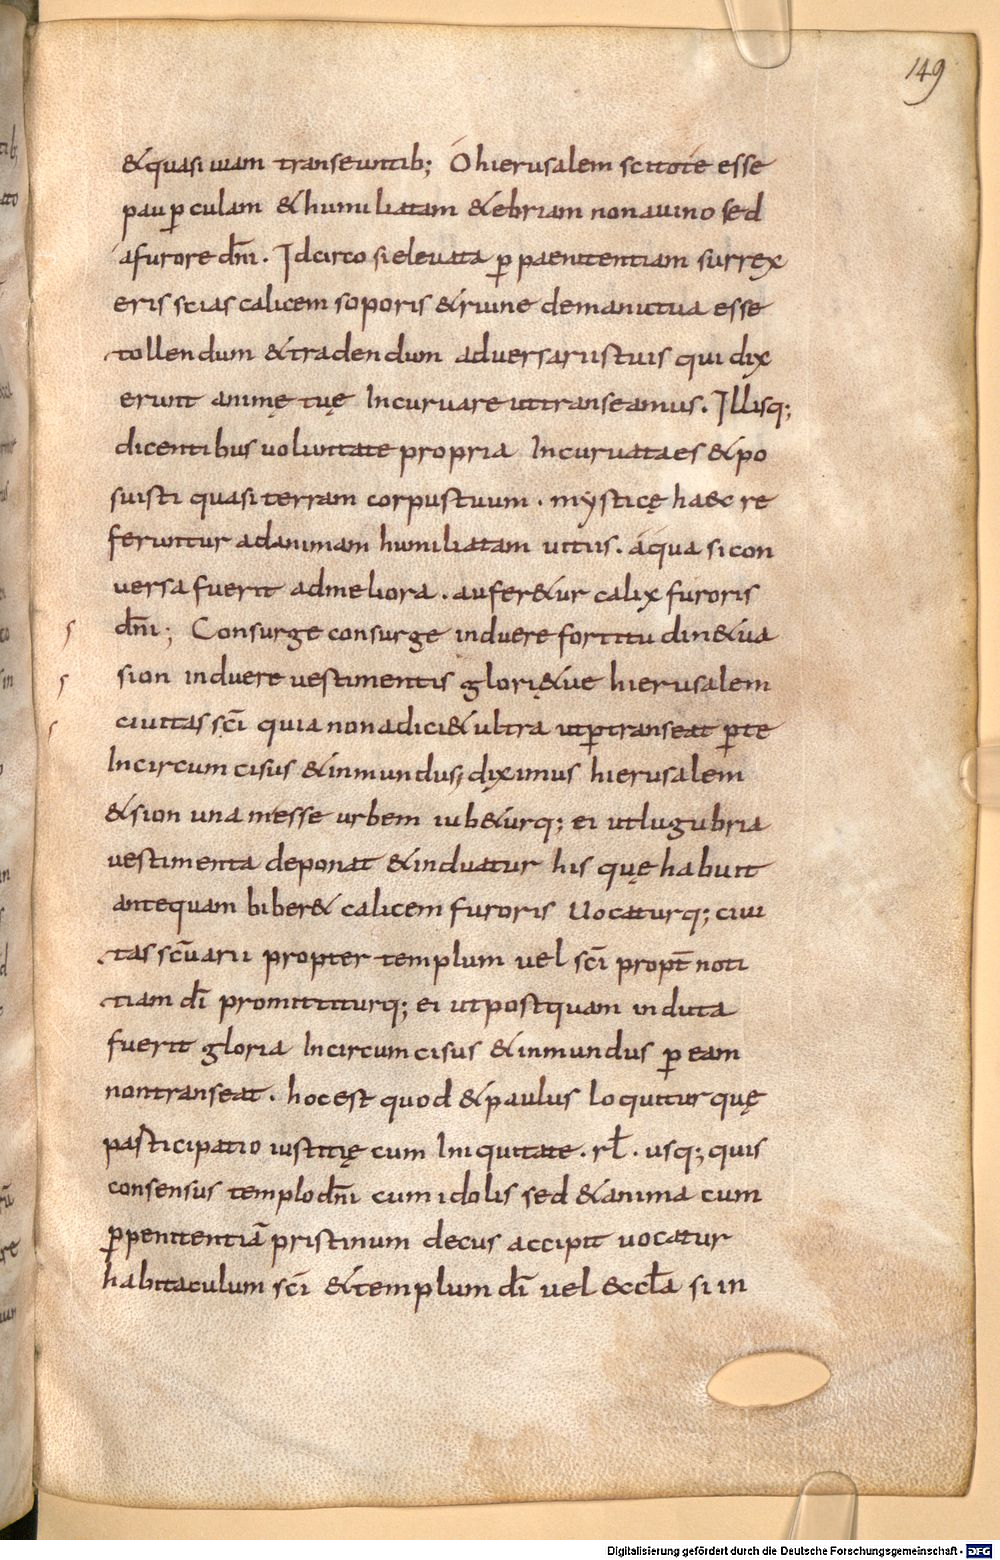 149
& quasi uiam transeuntib; O hierusalem scitote esse
paup̱culam & humiliatam & ebriam non auino sed
afurore dn̄i. Idcirco si eleuata p̱ paenitentiam surrex
eris scias calicem soporis & ruine demanu tua esse
tollendum & tradendum aduersariis tuis qui dix
erunt animę tuę Incuruare ut transeamus. Illisq;
dicentibus uoluntate propria Incuruata es & po
suisti quasi terram corpus tuum. mysticę haec re
feruntur ad animam humiliatam uitiis. áqua si con
uersa fuerit ad meliora. aufer&ur calix furoris
dn̄i; Consurge consurge induere fortitudin& ua
sion induere uestimentis glorię&ue hierusalem
ciuitas sc̄i quia non adici& ultra utp̱transeat p̱te
Incircumcisus & inmundus; diximus hierusalem
& sion unam esse urbem iub&urq; ei ut lugubria
uestimenta deponat & induatur his quę habuit
antequam biber& calicem furoris Uocaturq; ciui
tas sc̄uarii propter templum uel sc̄i propt̄ noti
tiam dī promittiturq; ei ut postquam induta
fuerit gloria Incircumcisus & inmundus p̱ eam
non transeat. hoc est quod & paulus loquitur quę
pasticipatio iustitię cum Iniquitate. rł. usq; quis
consensus templo dn̄i cum idolis sed & anima cum
p̱penitentiā pristinum decus accipit uocatur
habitaculum sc̄i & templum dī uel &ccła si in
Digitalisierung gefördert durch die Deutsche Forschungsgemeinschaft - DFG